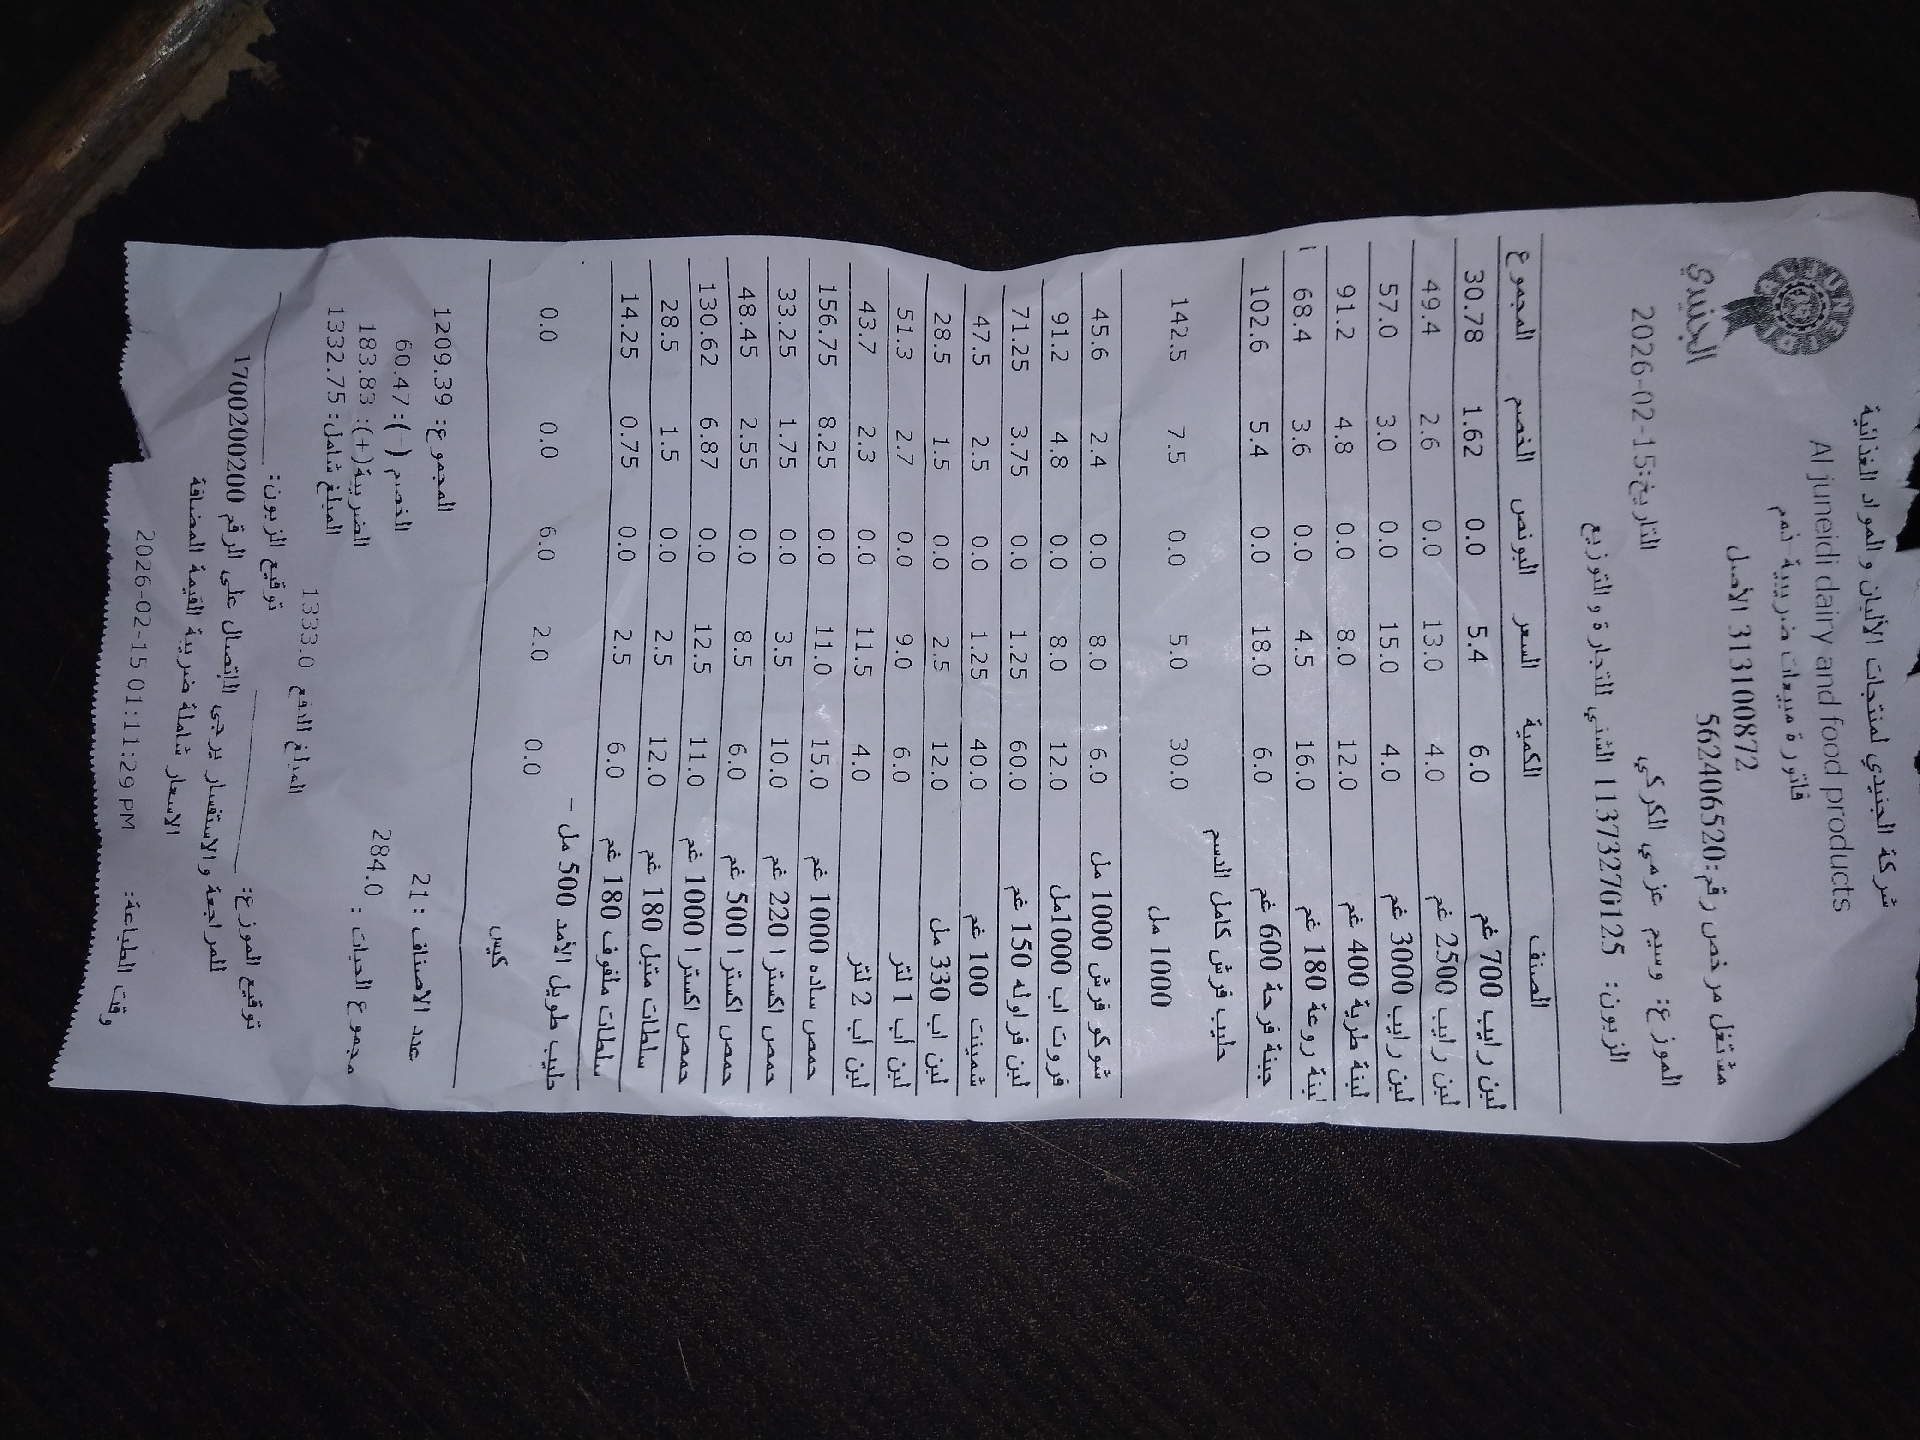 شركة الجنيدي لمنتجات الألبان والمواد الغذائية
Al juneidi dairy and food products
فاتورة مبيعات ضريبية ذمم
الجنيدي
313100872 الأصل
مشتغل مرخص رقم:562406520
التاريخ:2026-02-15 الموزع: وسيم عزمي الكركي
الزبون: 11373270125 الشني للتجارة و التوزيع
الصنف الكمية السعر البونص الخصم المجموع
لبن رايب 700 غم 6.0 5.4 0.0 1.62 30.78
لبن رايب 2500 غم 4.0 13.0 0.0 2.6 49.4
لبن رايب 3000 غم 4.0 15.0 0.0 3.0 57.0
لبنة طرية 400 غم 12.0 8.0 0.0 4.8 91.2
لبنة روعة 180 غم 16.0 4.5 0.0 3.6 68.4
جبنة فرحة 600 غم 6.0 18.0 0.0 5.4 102.6
حليب فرش كامل الدسم
1000 مل 30.0 5.0 0.0 7.5 142.5
شوكو فرش 1000 مل 6.0 8.0 0.0 2.4 45.6
فروت اب 1000مل 12.0 8.0 0.0 4.8 91.2
لبن فراوله 150 غم 60.0 1.25 0.0 3.75 71.25
شمينت 100 غم 40.0 1.25 0.0 2.5 47.5
لبن اب 330 مل 12.0 2.5 0.0 1.5 28.5
لبن اب 1 لتر 6.0 9.0 0.0 2.7 51.3
لبن اب 2 لتر 4.0 11.5 0.0 2.3 43.7
حمص ساده 1000 غم 15.0 11.0 0.0 8.25 156.75
حمص اكسترا 220 غم 10.0 3.5 0.0 1.75 33.25
حمص اكسترا 500 غم 6.0 8.5 0.0 2.55 48.45
حمص اكسترا 1000 غم 11.0 12.5 0.0 6.87 130.62
سلطات متبل 180 غم 12.0 2.5 0.0 1.5 28.5
سلطات ملفوف 180 غم 6.0 2.5 0.0 0.75 14.25
حليب طويل الأمد 500 مل -
كيس 0.0 2.0 6.0 0.0 0.0
عدد الاصناف : 21 المجموع: 1209.39
مجموع الحبات : 284.0 الخصم (-): 60.47
الضريبة(+): 183.83
المبلغ شامل: 1332.75
المبلغ الدفع 1333.0
توقيع الموزع: توقيع الزبون:
للمراجعة والاستفسار يرجى الاتصال على الرقم 1700200200
الاسعار شاملة ضريبة القيمة المضافة
وقت الطباعة: 2026-02-15 01:11:29 PM